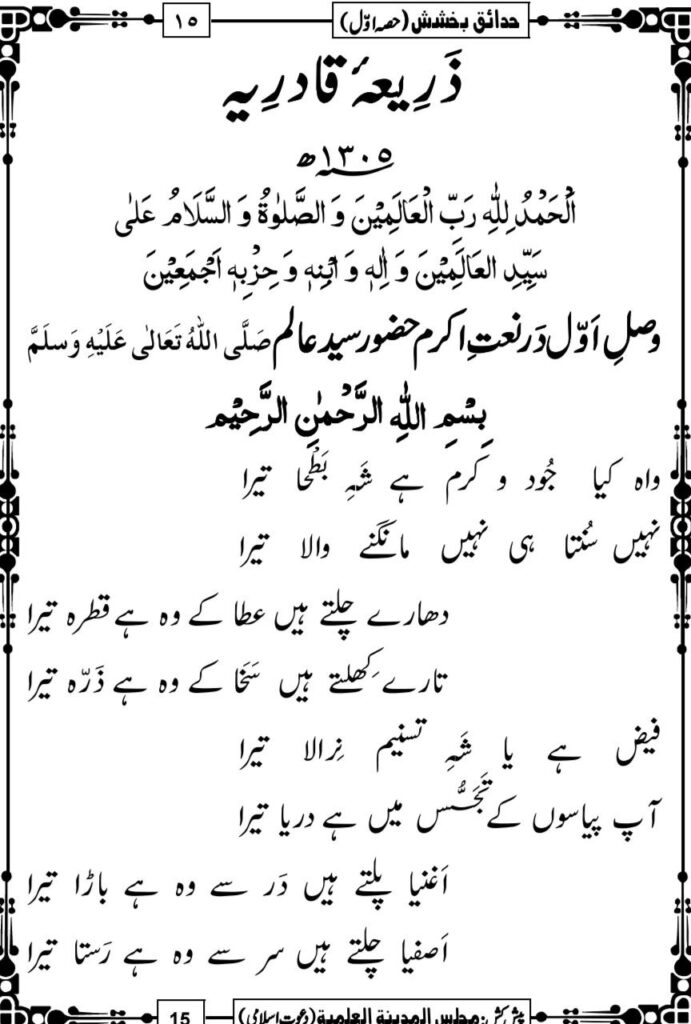 حدائق بخشش (حصہ اوّل) ١٥
ذَرِیعۂ قادرِیہ
١٣٠٥ھ
اَلْحَمْدُ لِلّٰہِ رَبِّ الْعَالَمِیْنَ وَ الصَّلٰوۃُ وَ السَّلَامُ عَلٰی
سَیِّدِ الْعَالَمِیْنَ وَ اٰلِہٖ وَ ابْنِہٖ وَ حِزْبِہٖ اَجْمَعِیْنَ
وصلِ اَوّل دَر نعتِ اکرم حضور سید عالم صَلَّی اللہُ تَعَالٰی عَلَیْہِ وَسَلَّمَ
بِسْمِ اللہِ الرَّحْمٰنِ الرَّحِیْم
واہ کیا جُود و کرم ہے شَہِ بَطْحا تیرا
نہیں سُنتا ہی نہیں مانگنے والا تیرا
دھارے چلتے ہیں عطا کے وہ ہے قطرہ تیرا
تارے کِھلتے ہیں سَخا کے وہ ہے ذَرّہ تیرا
فیض ہے یا شَہِ تسنیم نِرالا تیرا
آپ پیاسوں کے تَجَسُّس میں ہے دریا تیرا
اَغنیا پلتے ہیں دَر سے وہ ہے باڑا تیرا
اَصفیا چلتے ہیں سر سے وہ ہے رَستا تیرا
پیش کش: مجلس المدینۃ العلمیۃ (دعوتِ اسلامی) 15